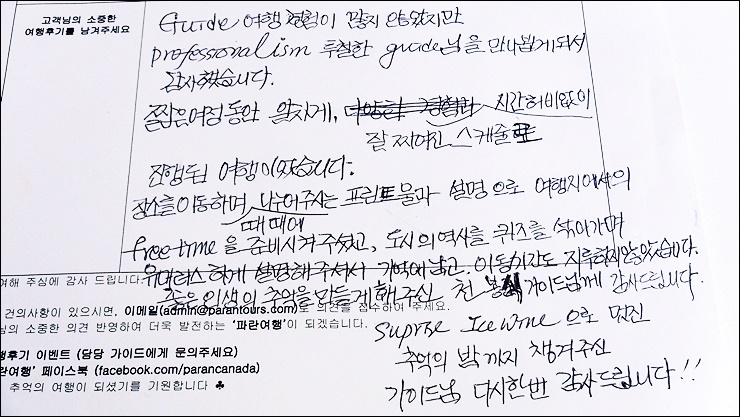 고객님의 소중한
여행후기를 남겨주세요
Guide 여행 경험이 많지 않았지만
professionalism 투철한 guide님을 만나뵙게되어
감사했습니다.
짧은여정동안 알차게, 다양한 경험과 시간허비없이
잘 짜여진 스케줄로
진행된 여행이었습니다.
장소를이동하며 나누어주시는 프린트물과 설명으로 여행지에서의
때때에
free time을 준비시켜주셨고, 도시의 역사를 퀴즈를 섞어가며
유머러스하게 설명해주셔서 기억에남고. 이동시간도 지루하지않았습니다.
여해 주심에 감사 드립니다.
좋은인생의 추억을만들게해주신 천 가이드님께 감사드립니다.
건의사항이 있으시면, 이메일(admin@parantours.com)로 의견을 접수하여 주세요.
님의 소중한 의견 반영하여 더욱 발전하는 '파란여행'이 되겠습니다.
Suprise Icewine 으로 멋진
행후기 이벤트 (담당 가이드에게 문의주세요)
란여행' 페이스북 (facebook.com/parancanada)
추억의 밤까지 챙겨주신
추억의 여행이 되셨기를 기원합니다 ♣
가이드님 다시한번 감사드립니다!!